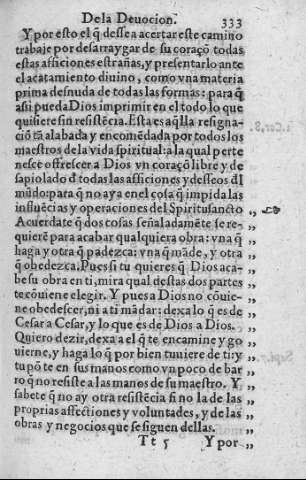 De la Deuocion. 333
Y por esto el q̃ dessea acertar este camino
trabaje por desarraygar de su coraçõ todas
estas afficiones estrañas, y presentarlo ante
el acatamiento diuino, como vna materia
prima desnuda de todas las formas: para q̃
assi pueda Dios imprimir en el todo lo que
quisiere sin resistẽcia. Esta es aq̃lla resigna-
ciõ tã alabada y encomẽdada por todos los
maestros de la vida spiritual: a la qual perte
nesce offrescer a Dios vn coraçõ libre y de-
sapiolado d̃ todas las afficiones y desseos d̃l
mũdo: para q̃ no aya en el cosa q̃ impida las
influẽcias y operaciones del Spiritu sancto „
Acuerdate q̃ dos cosas señaladamẽte se re- „
quierẽ para acabar qualquiera obra: vna q̃ „
haga y otra q̃ padezca: vna q̃ mãde, y otra „
q̃ obedezca. Pues si tu quieres q̃ Dios aca- „
be su obra en ti, mira qual destas dos partes „
te cõuiene elegir. Y pues a Dios no cõuie- „
ne obedescer, ni a ti mãdar: dexa lo q̃ es de „
Cesar a Cesar, y lo que es de Dios a Dios. „
Quiero dezir, dexa a el q̃ te encamine y go „
uierne, y haga lo q̃ por bien tuuiere de ti: y „
tu põ te en sus manos como vn poco de bar „
ro q̃ no resiste a las manos de su maestro. Y „
sabete q̃ no ay otra resistẽcia si no la de las „
proprias affectiones y voluntades, y de las „
obras y negocios que se siguen dellas. „
Tt 5 Y por „
1. Cor. 8.